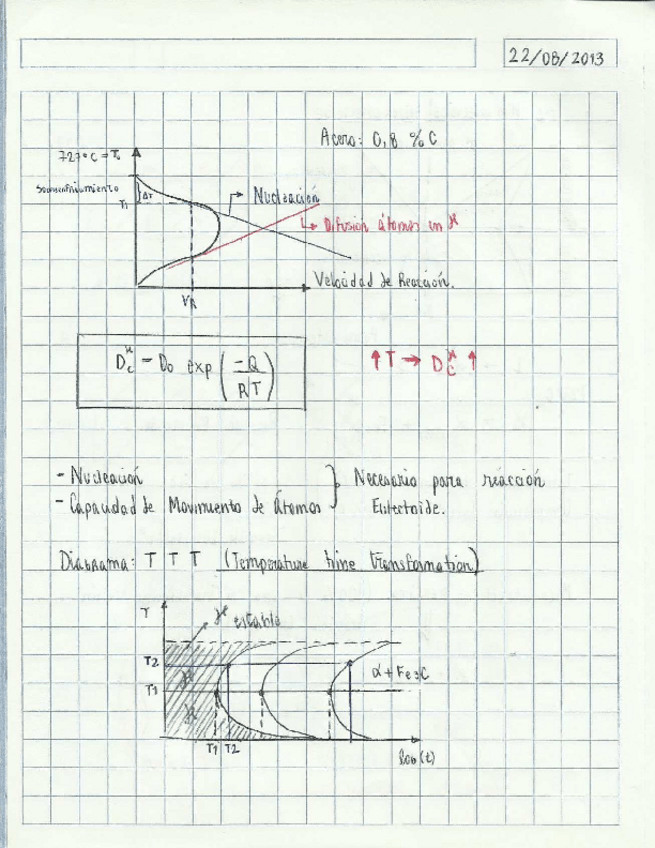 22/08/2013
Acero: 0,8 % C
727°C = T₀
Sobreenfriamiento
ΔT
T₁
Nucleación
Difusión átomos en γ
Velocidad de Reacción.
VR
D_c^γ = D₀ exp (-Q / RT)
↑T → D_C^γ ↑
- Nucleación
- Capacidad de Movimiento de Átomos } Necesario para reacción
Eutectoide.
Diagrama: T T T (Temperature time transformation)
T
γ estable
T2
γ
α + Fe3C
T1
γ
T1 T2
Log (t)